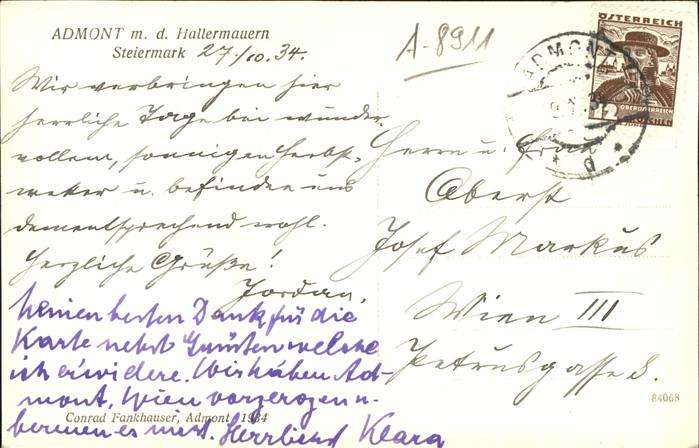 ADMONT m. d. Hallermauern
Steiermark 27./10.34.
A-8911
Wir verbringen hier
herrliche Tage bei wunder-
vollem, sonnigen Herbst-
wetter u. befinden uns
dementsprechend wohl.
Herzliche Grüße!
Jordan.
Meinen besten Dank für die
Karte nebst Grüßen welche
ich erwidere. Wir haben Ad-
mont, Wien vorgezogen u.
es nicht. Herzlichst Klara
Conrad Fankhauser, Admont, 1934
ÖSTERREICH
OBERÖSTERREICH
12 GROSCHEN
ADMONT
Herrn u. Frau
Oberst
Josef Markus
Wien III
Petrusgasse 8.
84068